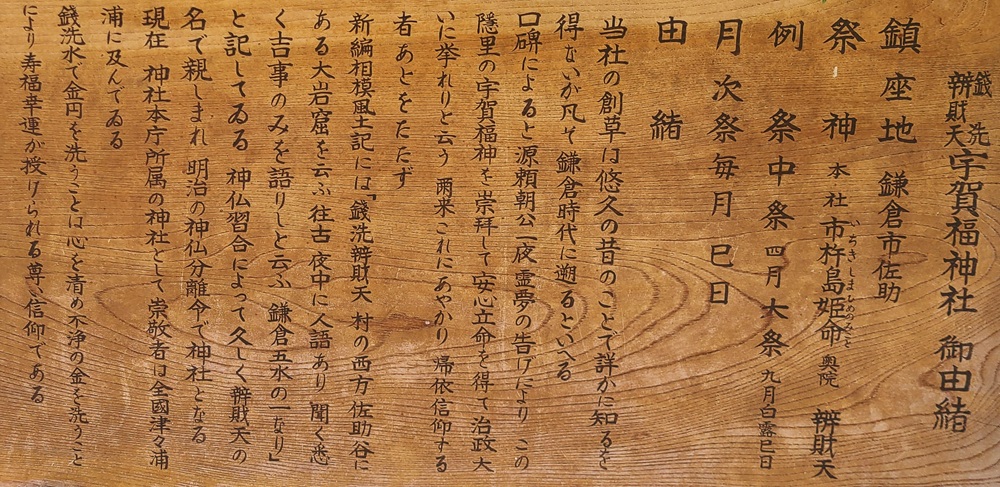 錢洗辨財天宇賀福神社 御由緒
鎮座地 鎌倉市佐助
祭神 本社 市杵島姫命 奥院 辨財天
いちきしまひめのみこと
例祭 中祭 四月 大祭 九月白露巳日
月次祭 毎月 巳日
由緒
当社の創草は悠久の昔のことで詳かに知るを
得ないが凡そ鎌倉時代に遡るといへる
口碑によると源頼朝公一夜霊夢の告げにより この
隠里の宇賀福神を崇拝して安心立命を得て治政大
いに挙れりと云う 爾来これにあやかり 帰依信仰する
者あとをたたず
新編相模風土記には「錢洗辨財天 村の西方 佐助谷に
ある大岩窟を云ふ 往古夜中に人語あり 聞く悉
く吉事のみを語りしと云ふ 鎌倉五水の一なり」
と記してゐる 神仏習合によって久しく辨財天の
名で親しまれ 明治の神仏分離令で神社となる
現在 神社本庁所属の神社として崇敬者は全國津々浦
浦に及んでゐる
錢洗水で金円を洗うことは心を清め不浄の金を洗うこと
により寿福幸運が授けられる尊い信仰である